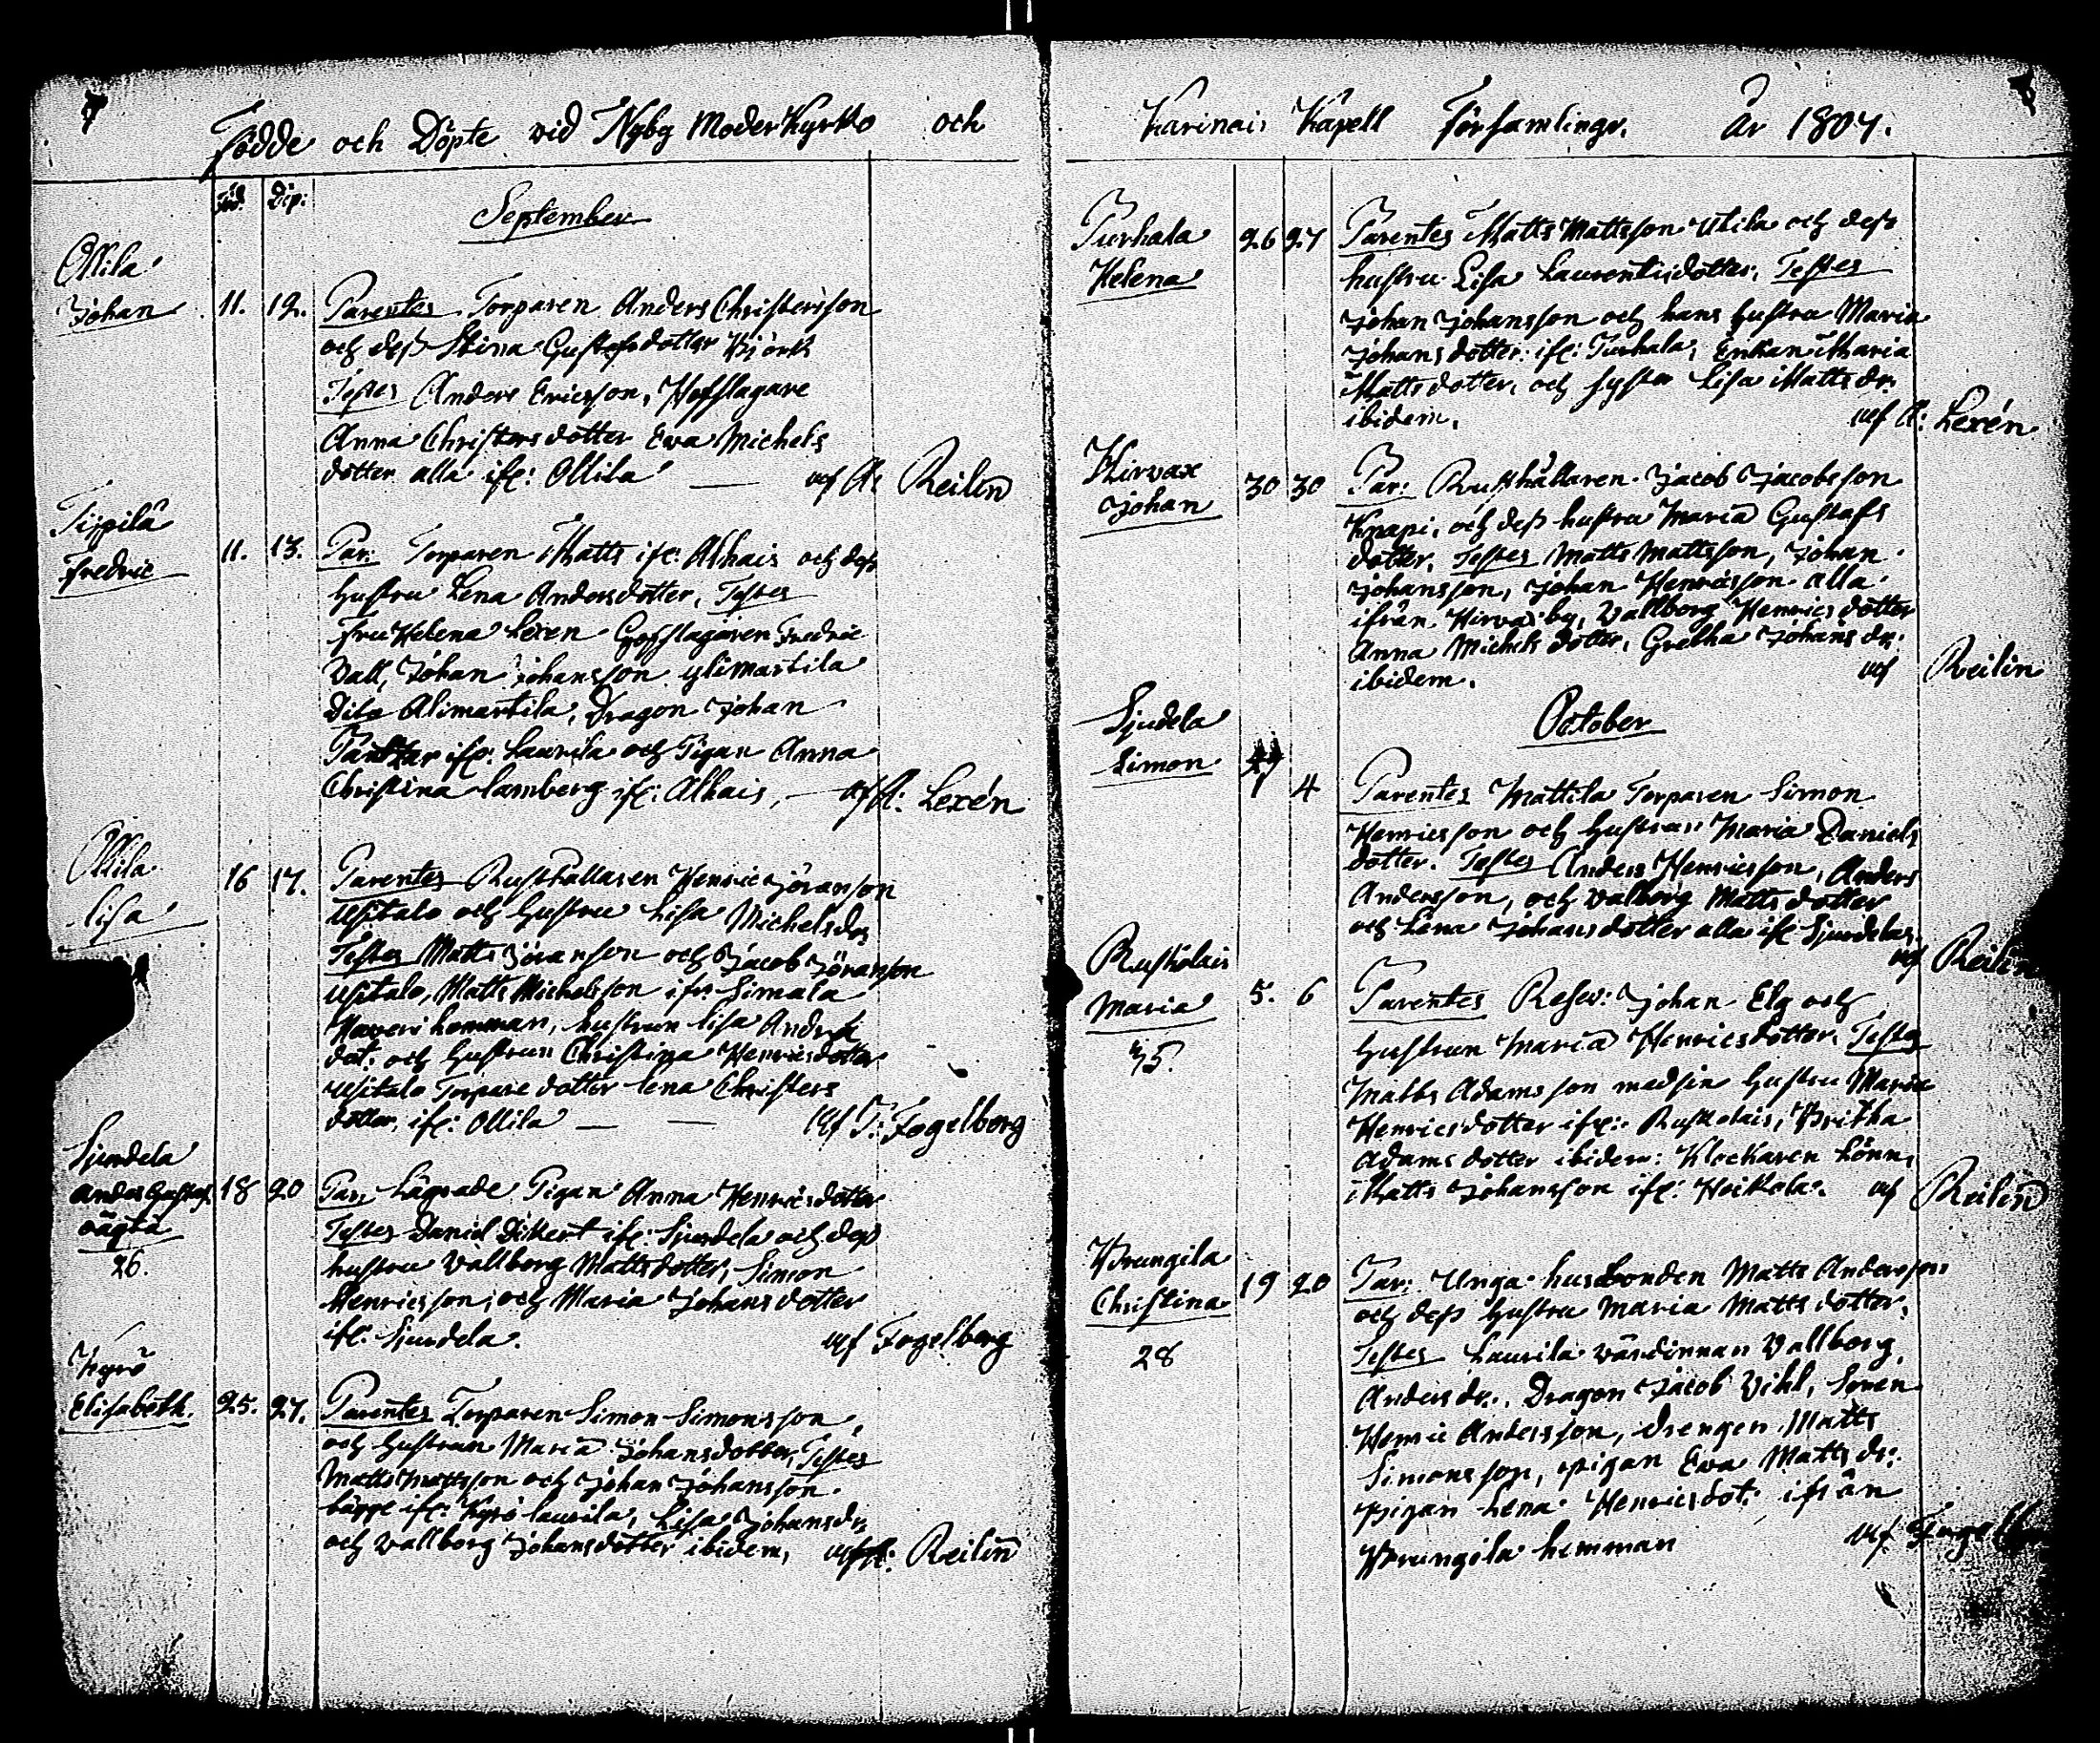 Födde och Döpte vid Nyby Moder Kyrko och
Föd. Döp:
September
Ollila
Johan 11. 12. Parentes Torparen Anders Christersson
och dess Stina Gustafsdotter Björk
Testes Anders Ericsson, Hofslagare
Anna Christersdotter Ewa Michels
dotter alla ifr: Ollila — af A: Reilin
Tippilä
Fredric 11. 13. Par: Torparen Matts ifr: Alhais och dess
hustru Lena Andersdotter, Testes
Fru Helena Lexen Hofslagaren Fredric
Vall, Johan Johansson Ylimartila
Dito Alimartila, Dragon Johan
Pantzar ifr: Laurila och Pigan Anna
Christina Lamberg ifr: Alhais, — af A: Lexén
Ollila
Lisa 16 17. Parentes Rusthållaren Henric Jöranson
Usitalo och hustru Lisa Michelsdr
Testes Matts Jöranson och Jacob Jöranson
Usitalo, Matts Michelsson ifr: Simala
hemman, hustrun Lisa Anders
dot: och hustrun Christina Henricsdotter
Usitalo Torpare dotter Lena Christers
dotter, ifr: Ollila — — af T: Fogelberg
Sjundela
Anders Gustaf 18 20 Par: Lägrade Pigan Anna Henricsdotter
oägta Testes Daniel Dikert ifr: Sjundela och dess
26. hustru Vallborg Mattsdotter, Simon
Henricsson, och Maria Johansdotter
ifr: Sjundela. af Fogelberg
Kyrö
Elisabeth. 25. 27. Parentes Torparen Simon Simonsson
och hustrun Maria Johansdotter, Testes
Matts Mattsson och Johan Johansson
ifr: Kyrö Laurila, Lisa Johansdr
och Vallborg Johansdotter ibidem, af A: Reilin
Karinais Kapell Församlingr. År 1807.
Turhala 26 27 Parentes Matts Mattsson Utila och dess
Helena hustru Lisa Laurentiidotter, Testes
Johan Johansson och hans hustru Maria
Johansdotter ifr: Turhala, Enkan Maria
Mattsdotter, och syster Lisa Matts dr.
ibidem. af A: Lexén
Hirvax 30 30 Par: Rusthållaren Jacob Jacobsson
Johan Knapi, och dess hustru Maria Gustafs
dotter. Testes Matts Mattsson, Johan
Johansson, Johan Henricsson alla
ifrån Hirvas by, Vallborg Henricsdotter
Anna Michelsdotter, Gretha Johans dr.
ibidem. af Reilin
October
Sjudela
Simon 1 4 Parentes Mattila Torparen Simon
Henricsson och hustrun Maria Daniels
dotter. Testes Anders Henricsson, Anders
Andersson, och Valborg Matts dotter
och Lena Johansdotter alla ifr Sjundela,
af Reilin
Ruskolais
Maria 5. 6 Parentes Reserv: Johan Elg och
35. hustrun Maria Henricsdotter. Testes
Matts Adamsson med sin hustru Maria
Henricsdotter ifr: Ruskolais, Britha
Adams dotter ibidem: Klockaren Lönn,
Matts Johansson ifr: Heikola. af Reilin
Prungila
Christina 19 20 Par: Unga husbonden Matts Andersson
28 och dess hustru Maria Matts dotter.
Testes Laurila värdinnan Vallborg
Anders dr., Dragon Jacob Vihl, Sonen
Henric Andersson, drengen Matts
Simonsson, pigan Ewa Matts dr:
pigan Lena Henricsdot: ifrån
Prungila hemman af